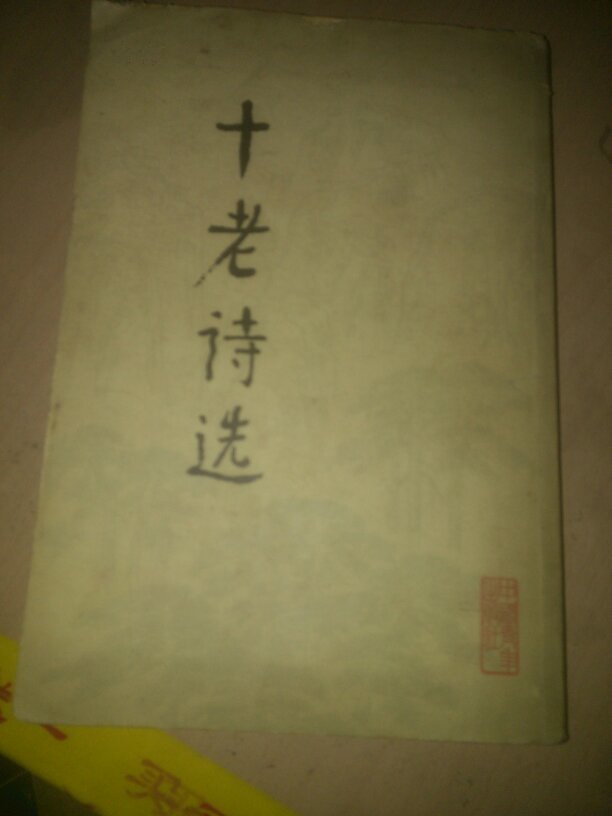 十老诗选